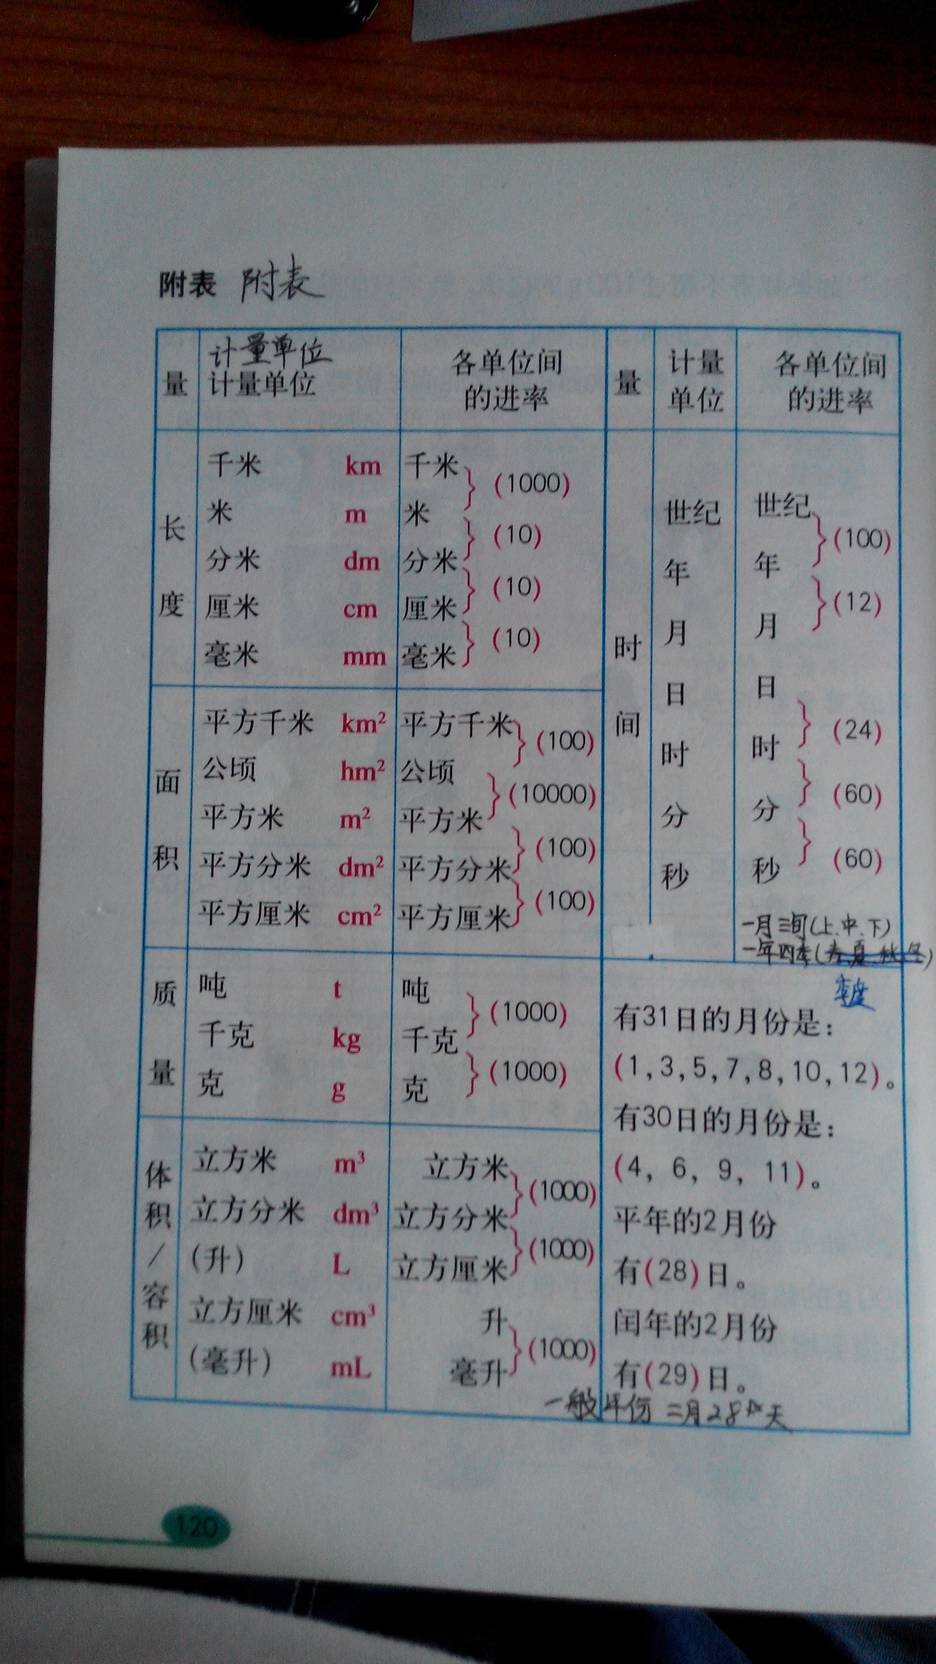 附表 附表
量 计量单位 计量单位 各单位间的进率 量 计量单位 各单位间的进率
长度
千米 km 千米
(1000)
米 m 米
(10)
分米 dm 分米
(10)
厘米 cm 厘米
(10)
毫米 mm 毫米
面积
平方千米 km² 平方千米
(100)
公顷 hm² 公顷
(10000)
平方米 m² 平方米
(100)
平方分米 dm² 平方分米
(100)
平方厘米 cm² 平方厘米
质量
吨 t 吨
(1000)
千克 kg 千克
(1000)
克 g 克
体积/容积
立方米 m³ 立方米
(1000)
立方分米 dm³ 立方分米
(1000)
(升) L 立方厘米
立方厘米 cm³ 升
(1000)
(毫升) mL 毫升
时间
世纪 世纪
(100)
年 年
(12)
月 月
日 日
(24)
时 时
(60)
分 分
(60)
秒 秒
一月三旬(上.中.下)
一年四季(春.夏.秋.冬)
有31日的月份是:
(1,3,5,7,8,10,12)。
有30日的月份是:
(4, 6, 9, 11)。
平年的2月份
有(28)日。
闰年的2月份
有(29)日。
一般年份二月28天
120